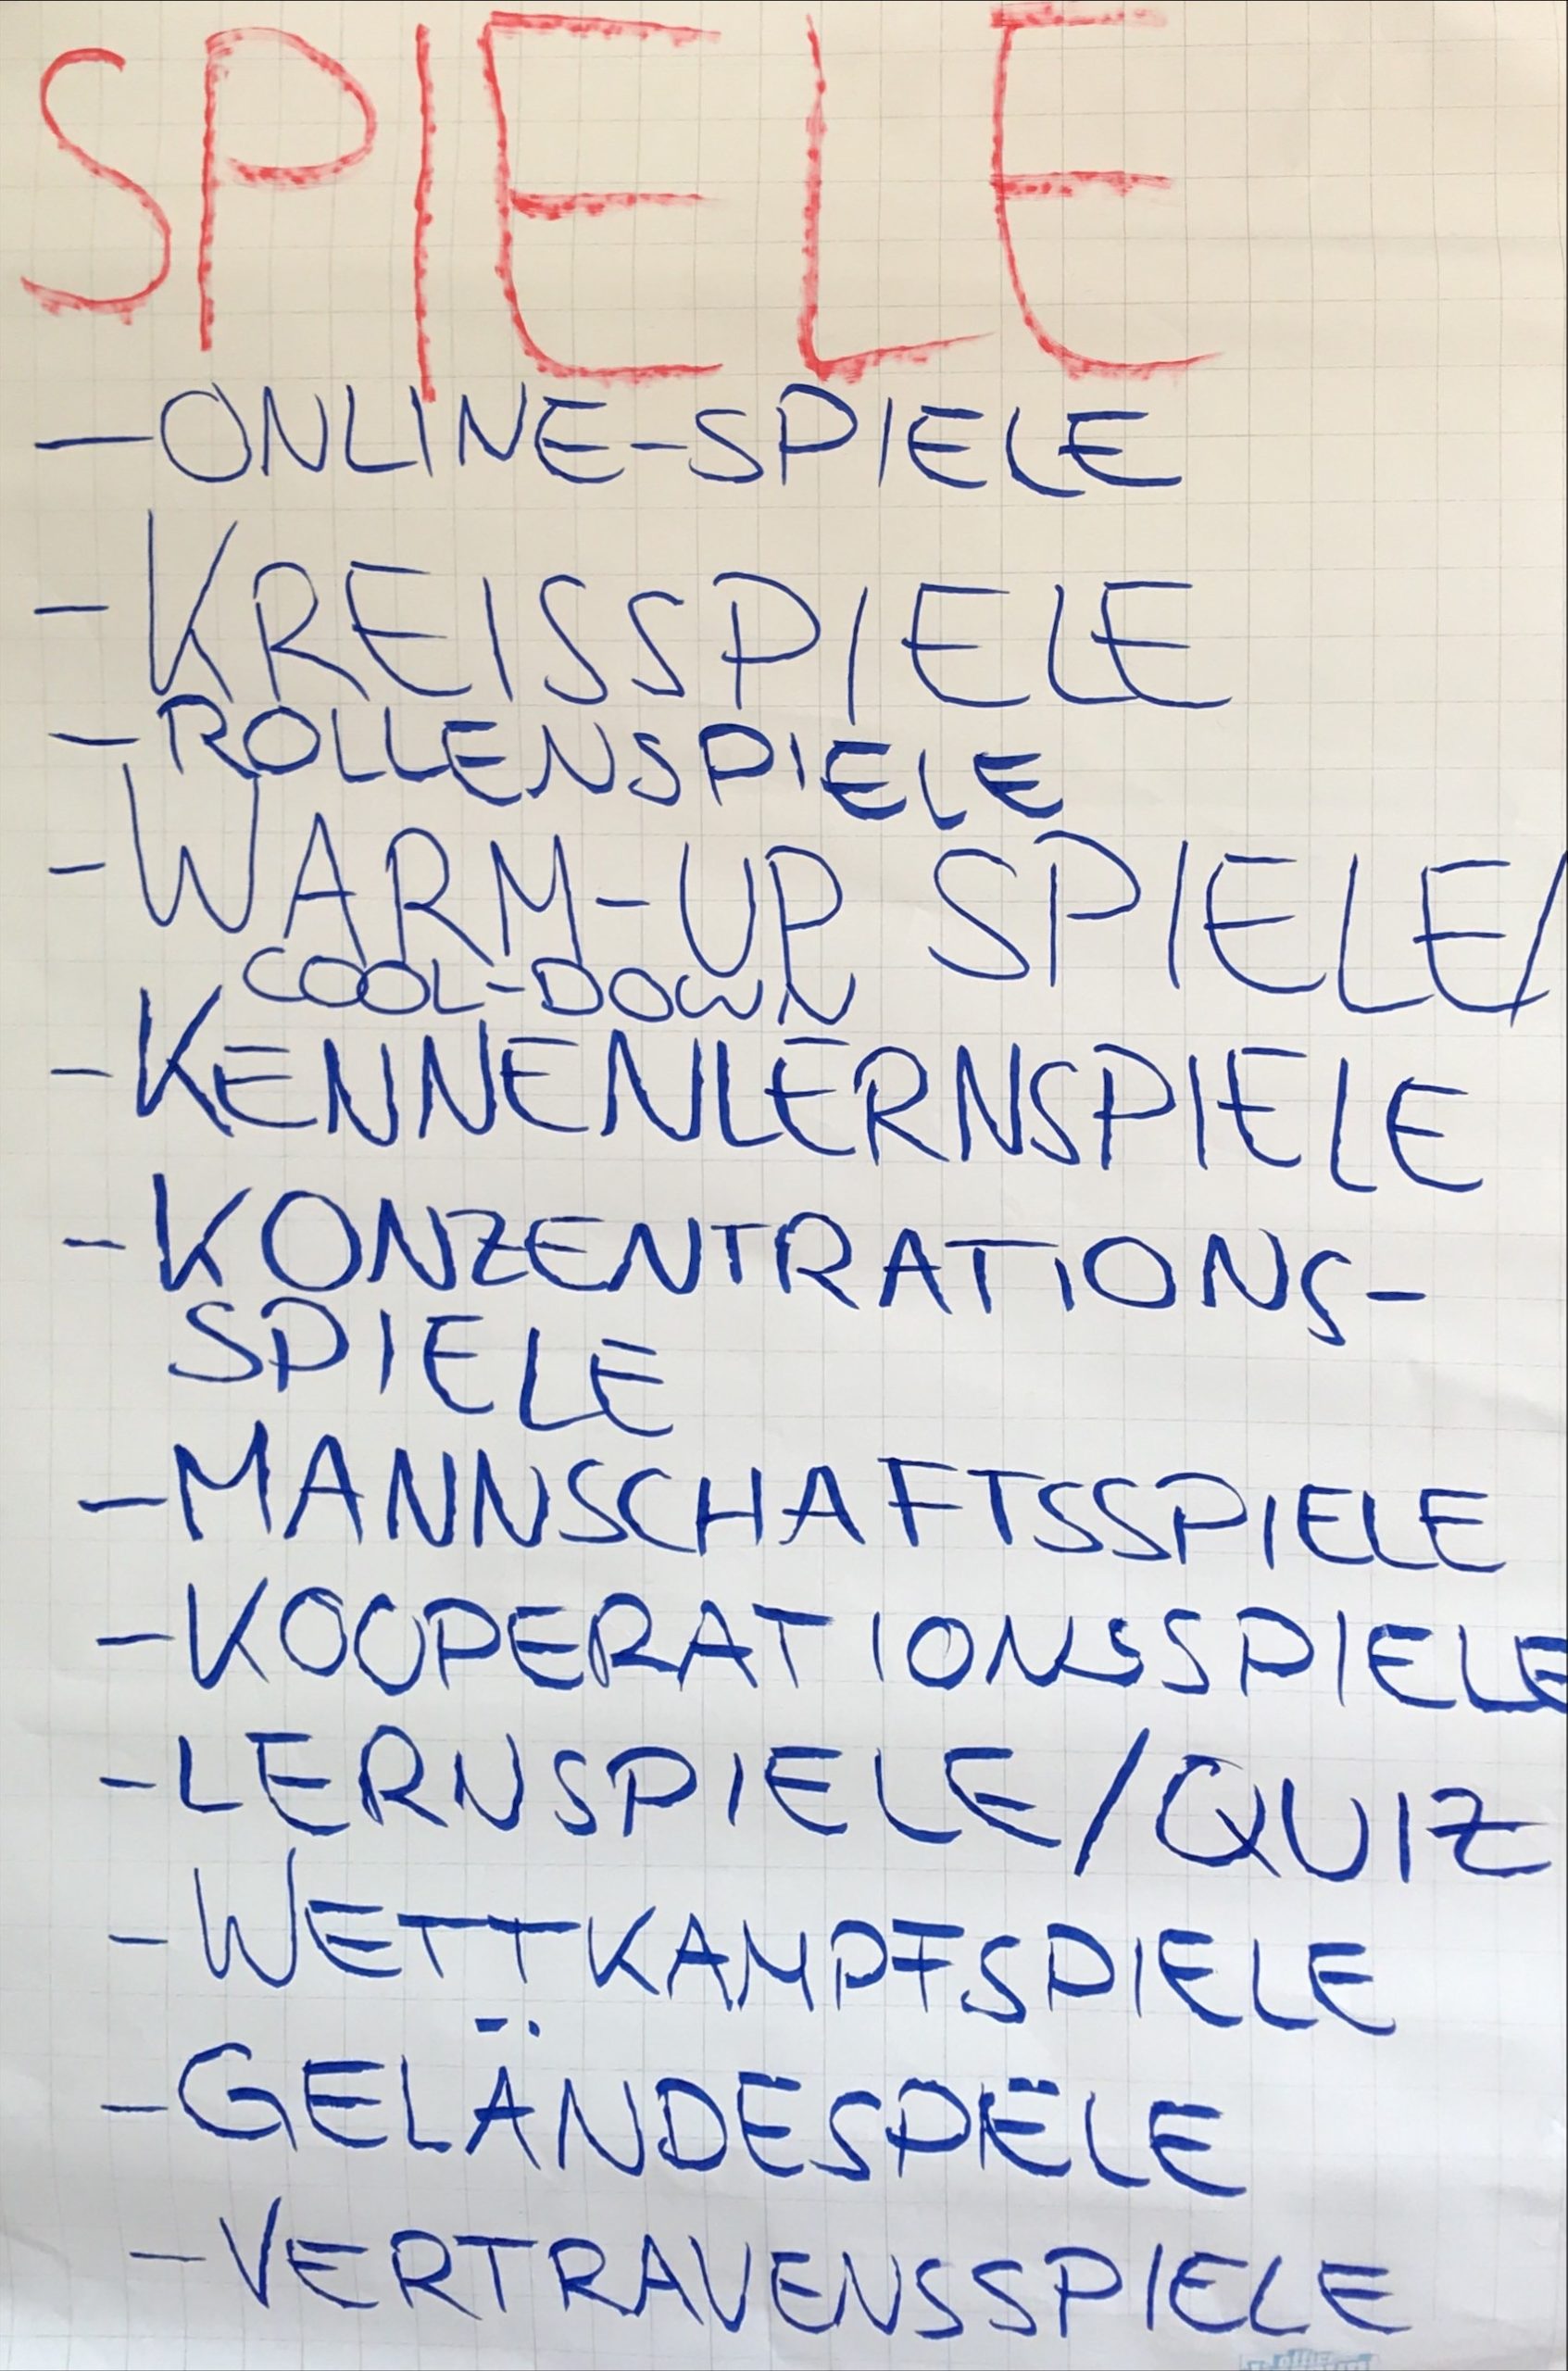 SPIELE
- ONLINE-SPIELE
- KREISSPIELE
- ROLLENSPIELE
- WARM-UP SPIELE/
COOL-DOWN
- KENNENLERNSPIELE
- KONZENTRATIONS-
SPIELE
- MANNSCHAFTSSPIELE
- KOOPERATIONSSPIELE
- LERNSPIELE/QUIZ
- WETTKAMPFSPIELE
- GELÄNDESPIELE
- VERTRAUENSSPIELE